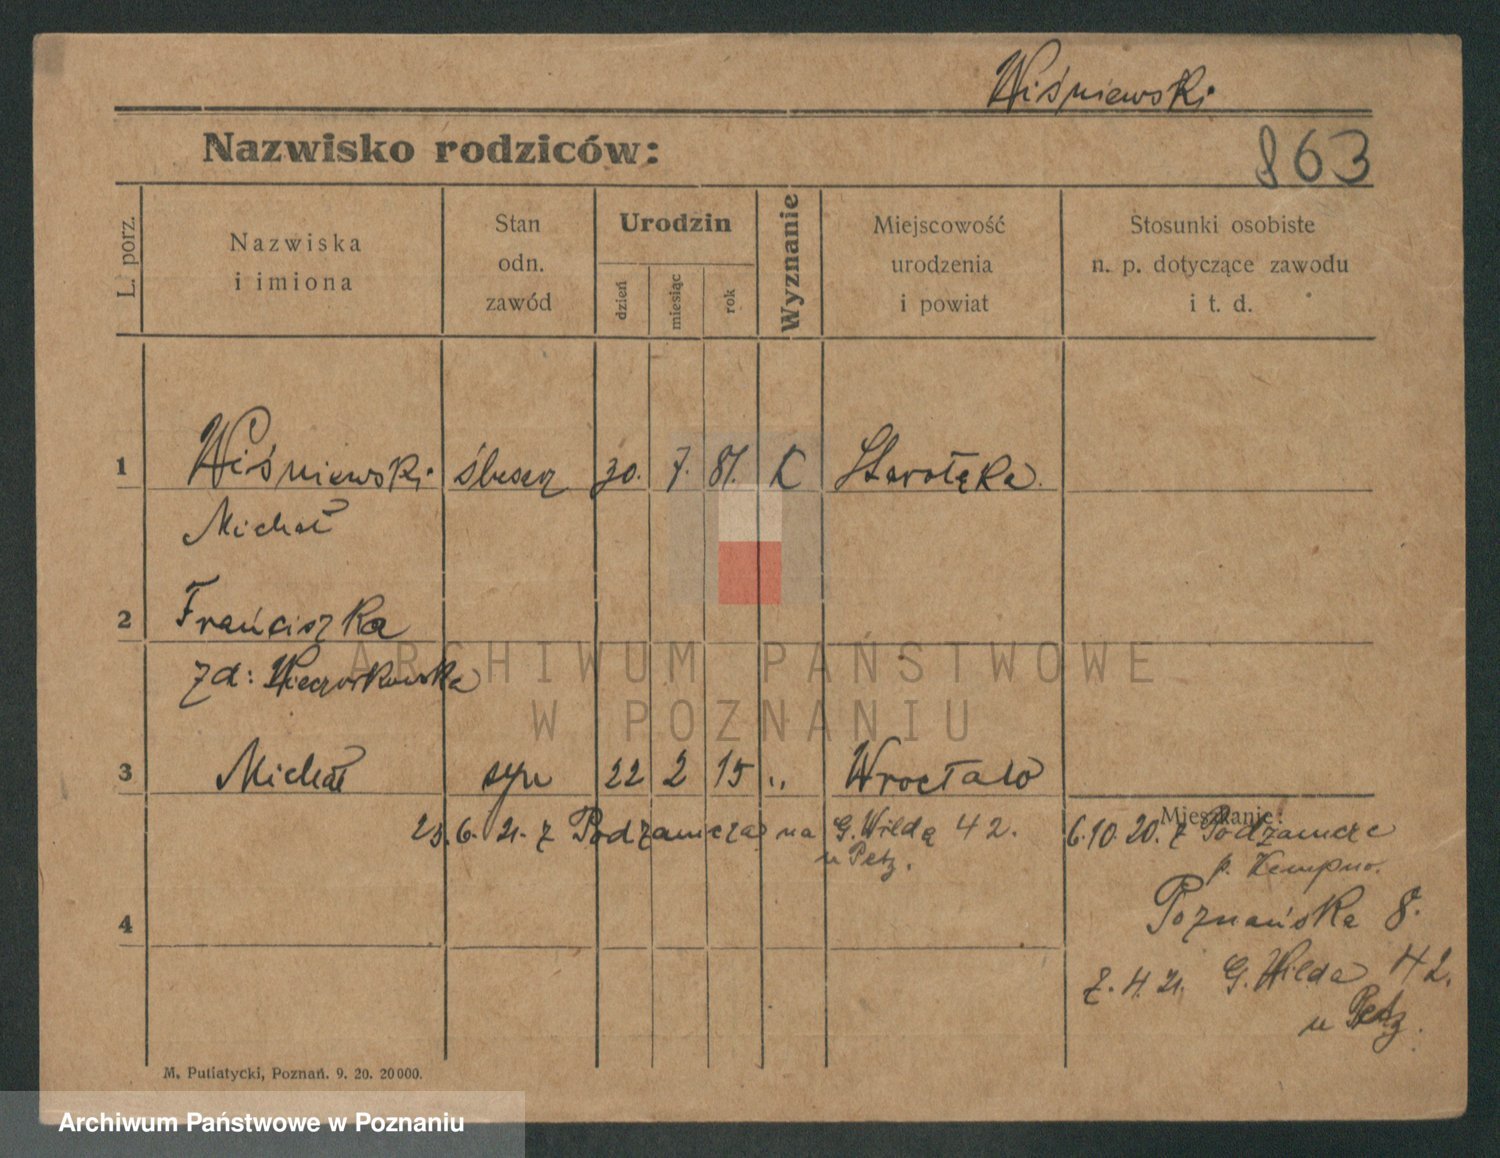 Wiśniewski
Nazwisko rodziców:
863
L. porz.
Nazwiska
i imiona
Stan
odn.
zawód
Urodzin
dzień
miesiąc
rok
Wyznanie
Miejscowość
urodzenia
i powiat
Stosunki osobiste
n. p. dotyczące zawodu
i t. d.
1 Wiśniewski 30. 7. 81. K Starołęka.
Michał
2 Franciszka
zd: Wieczorkowska
3 Michał syn 22 2 15 „ Wrocław
Mieszkanie:
23. 6. 21. z Podzamcza na G. Wildą 42.
u Petz.
6.10.20. z Podzamcze
p. Kempno.
4
Poznańska 8.
7. 4. 21. G. Wilda 42.
u Petz.
M. Putiatycki, Poznań. 9. 20. 20000.
ARCHIWUM PAŃSTWOWE
W POZNANIU
Archiwum Państwowe w Poznaniu